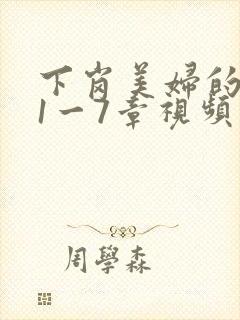 下岗美婦的
1一7章視頻
周學森